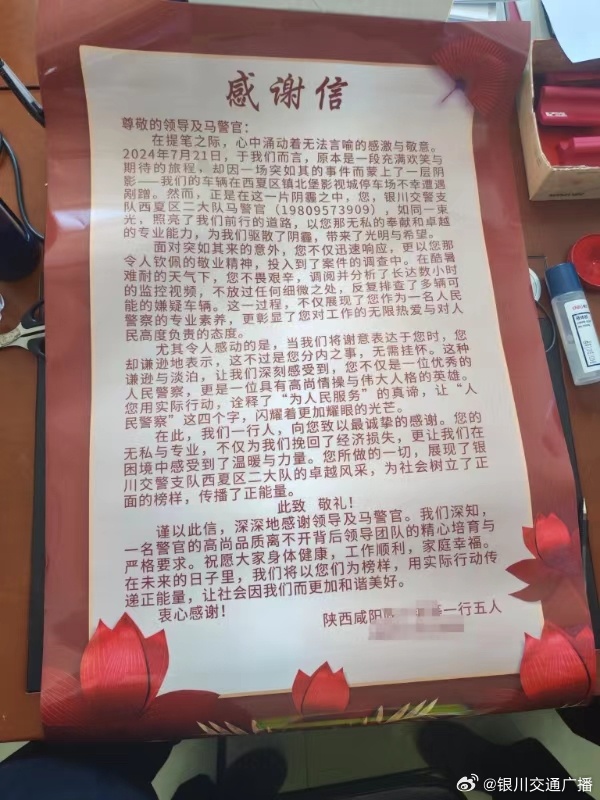 感谢信
尊敬的领导及马警官：
在提笔之际，心中涌动着无法言喻的感激与敬意。
2024年7月21日，于我们而言，原本是一段充满欢笑与
期待的旅程，却因一场突如其的事件而蒙上了一层阴
影——我们的车辆在西夏区镇北堡影视城停车场不幸遭遇
剐蹭。然而，正是在这一片阴霾之中，您，银川交警支
队西夏区二大队马警官（19809573909），如同一束
光，照亮了我们前行的道路，以您那无私的奉献和卓越
的专业能力，为我们驱散了阴霾，带来了光明与希望。
面对突如其来的意外，您不仅迅速响应，更以您那
令人钦佩的敬业精神，投入到了案件的调查中。在酷暑
难耐的天气下，您不畏艰辛，调阅并分析了长达数小时
的监控视频，不放过任何细微之处，反复排查了多辆可
能的嫌疑车辆。这一过程，不仅展现了您作为一名人民
警察的专业素养，更彰显了您对工作的无限热爱与对人
民高度负责的态度。
尤其令人感动的是，当我们将谢意表达于您时，您
却谦逊地表示，这不过是您分内之事，无需挂怀。这种
谦逊与淡泊，让我们深刻感受到，您不仅是一位优秀的
人民警察，更是一位具有高尚情操与伟大人格的英雄。
您用实际行动，诠释了“为人民服务”的真谛，让“人
民警察”这四个字，闪耀着更加耀眼的光芒。
在此，我们一行人，向您致以最诚挚的感谢。您的
无私与专业，不仅为我们挽回了经济损失，更让我们在
困境中感受到了温暖与力量。您所做的一切，展现了银
川交警支队西夏区二大队的卓越风采，为社会树立了正
面的榜样，传播了正能量。
此致 敬礼！
谨以此信，深深地感谢领导及马警官。我们深知，
一名警官的高尚品质离不开背后领导团队的精心培育与
严格要求。祝愿大家身体健康，工作顺利，家庭幸福。
在未来的日子里，我们将以您们为榜样，用实际行动传
递正能量，让社会因我们而更加和谐美好。
衷心感谢！
陕西咸阳 一行五人
@银川交通广播